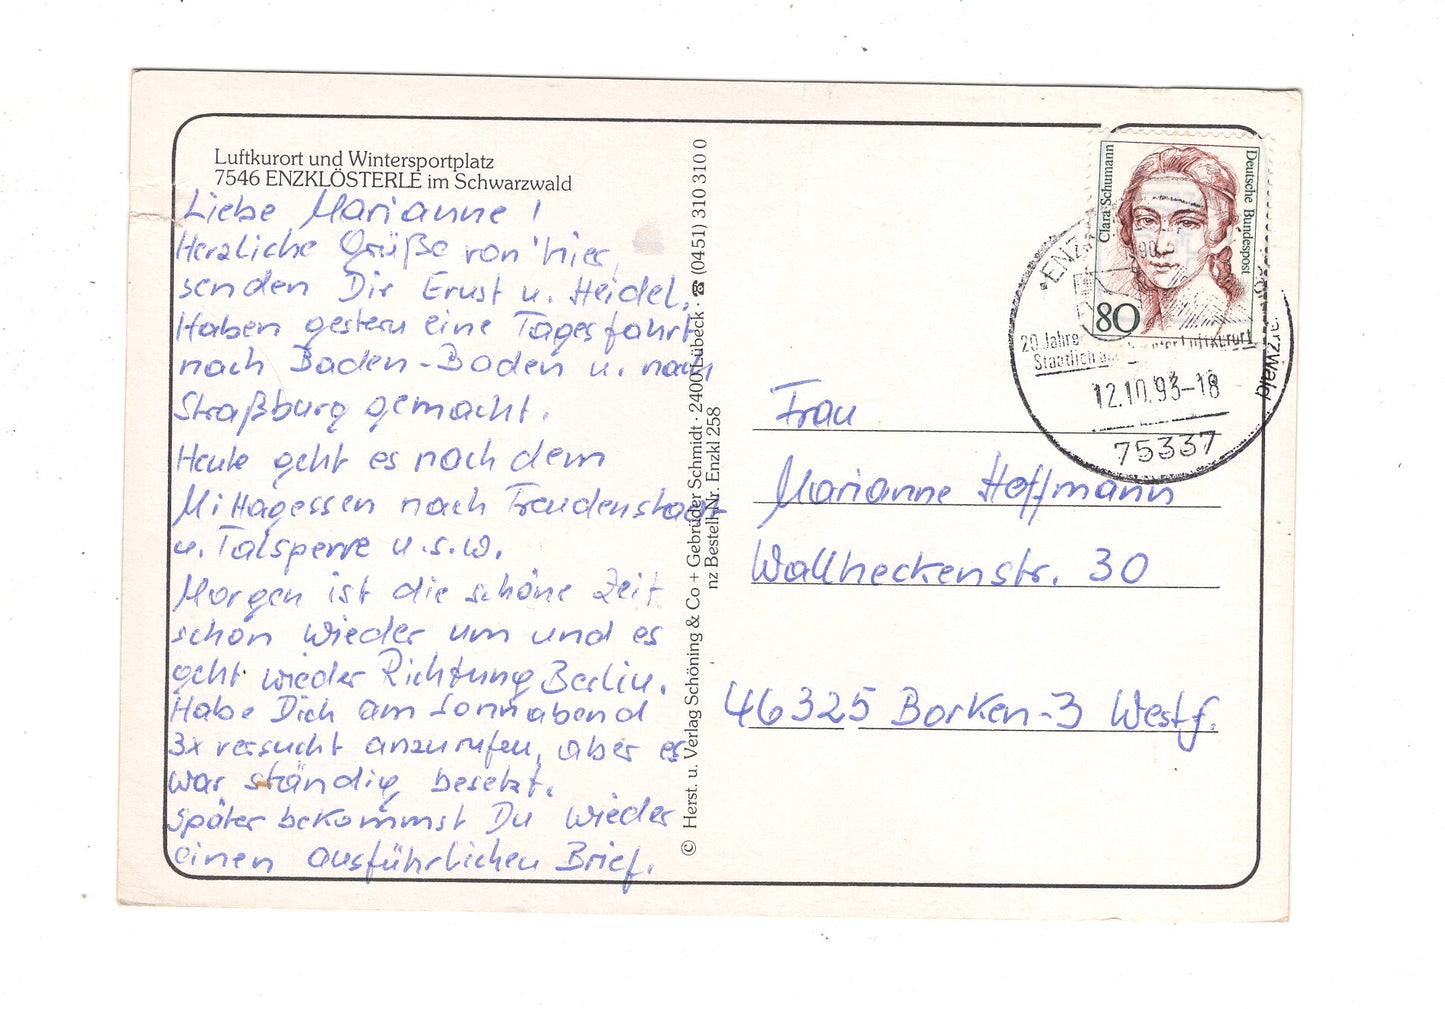 Luftkurort und Wintersportplatz
7546 ENZKLÖSTERLE im Schwarzwald
Liebe Marianne!
Herzliche Grüße von hier,
senden Dir Ernst u. Heidel.
Haben gestern eine Tagesfahrt
nach Baden-Baden u. nach
Straßburg gemacht.
Heute geht es nach dem
Mittagessen nach Freudenstadt
u. Talsperre u.s.w.
Morgen ist die schöne Zeit
schon wieder um und es
geht wieder Richtung Berlin.
Habe Dich am Sonnabend
3x versucht anzurufen, aber es
war ständig besetzt.
Später bekommst Du wieder
einen ausführlichen Brief.
© Herst. u. Verlag Schöning & Co + Gebrüder Schmidt · 2400 Lübeck · ☎ (0451) 310 310 0
nz Bestell-Nr. Enzkl 258
Clara Schumann
Deutsche Bundespost
80
20 Jahre
Staatlich Luftkurort
12.10.93-18
75337
Frau
Marianne Hoffmann
Wallheckenstr. 30
46325 Borken-3 Westf.